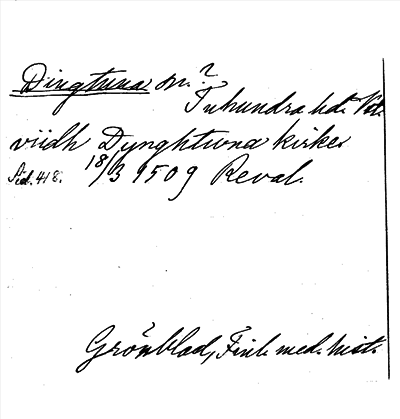 Dingtuna sn.?
Tuhundra hd. Vstm.
viidh Dynghtwna kirke
Sid. 418. 18/3 1509 Reval.
Grönblad, Finl. med. hist.